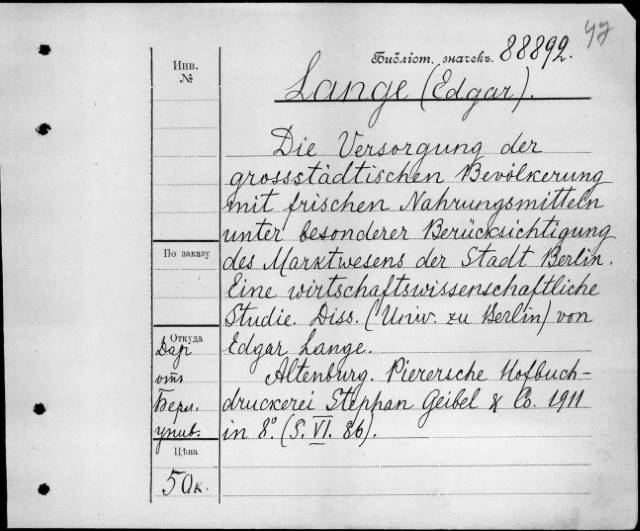 47
Библіот. значекъ. 88892.
Инв.
№
Lange (Edgar).
Die Versorgung der
grossstädtischen Bevölkerung
mit frischen Nahrungsmitteln
unter besonderer Berücksichtigung
des Marktwesens der Stadt Berlin.
Eine wirtschaftswissenschaftliche
Studie. Diss. (Univ. zu Berlin) von
Edgar Lange.
Altenburg. Pierersche Hofbuch-
druckerei Stephan Geibel & Co. 1911
in 8º. (S. VI. 86).
По заказу
Откуда
Дар
отъ
Берл.
унив.
Цѣна
50к.